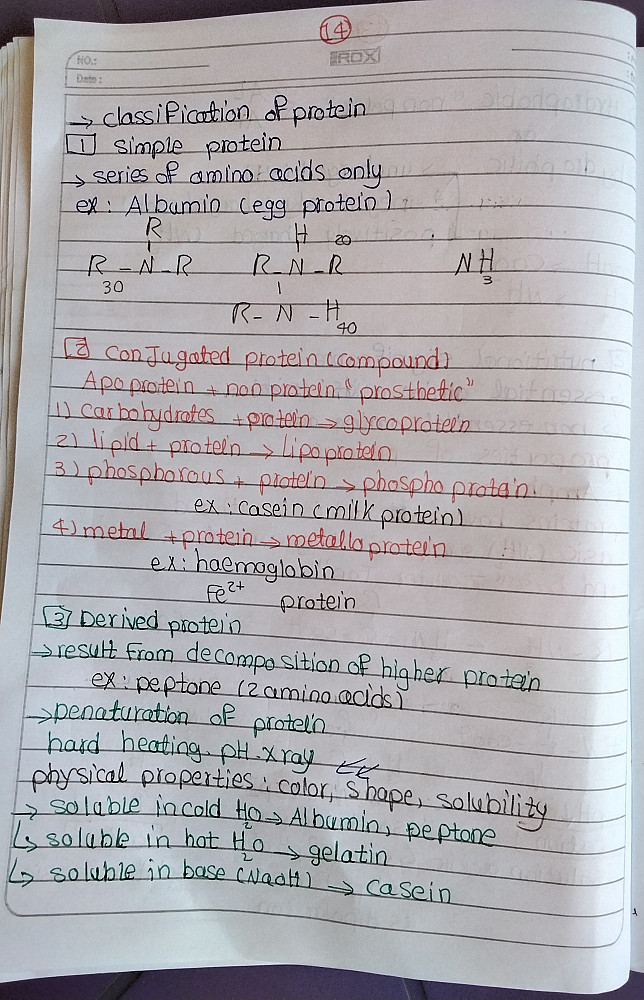 14
NO.:
ROX
Date:
→ classification of protein
1 simple protein
→ series of amino acids only
ex: Albumin (egg protein)
R H 20
R - N - R R - N - R NH3
30
R - N - H 40
2 conjugated protein (compound)
Apoprotein + non protein "prosthetic"
1) carbohydrates + protein → glycoprotein
2) lipid + protein → Lipoprotein
3) phosphorous + protein → phospho protein
ex: casein (milk protein)
4) metal + protein → metallo protein
ex: haemoglobin
Fe2+ protein
3 Derived protein
→ result from decomposition of higher protein
ex: peptone (2 amino acids)
→ Denaturation of protein
hard heating. pH. x ray
physical properties: color, shape, solubility
→ soluble in cold H2O → Albumin, peptone
↳ soluble in hot H2O → gelatin
↳ soluble in base (NaOH) → casein